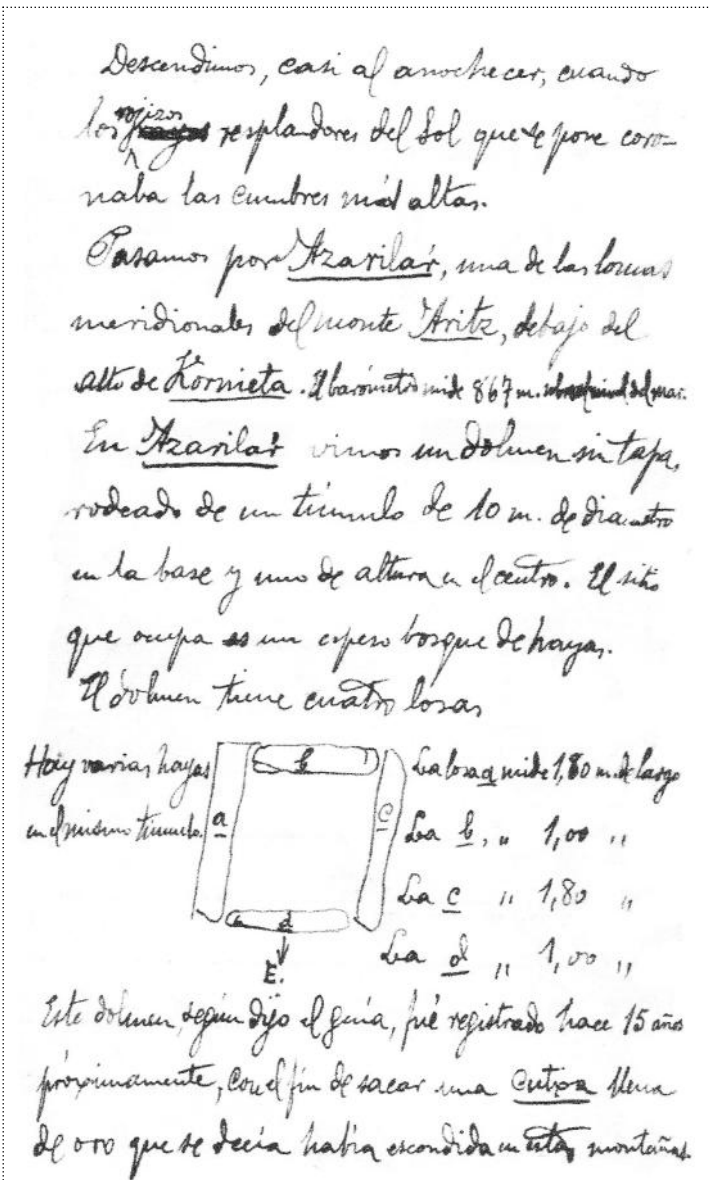 Descendimos, casi al anochecer, cuando
los rojizos resplandores del Sol que se pone coro-
naba las cumbres más altas.
Pasamos por Azarilar, una de las lomas
meridionales del monte Aritz, debajo del
alto de Kornieta. El barómetro mide 867 m. sobre el nivel del mar.
En Azarilar vimos un dolmen sin tapa,
rodeado de un túmulo de 10 m. de diametro
en la base y uno de altura en el centro. El sitio
que ocupa es un espeso bosque de hayas.
El dolmen tiene cuatro losas
Hay varias hayas
en el mismo túmulo.
a
b
c
d
E.
La losa a mide 1,80 m. de largo
La b, " 1,00 "
La c " 1,80 "
La d " 1,00 "
Este dolmen, según dijo el guía, fué registrado hace 15 años
próximamente, con el fin de sacar una cutixa llena
de oro que se decía había escondida en estas montañas.